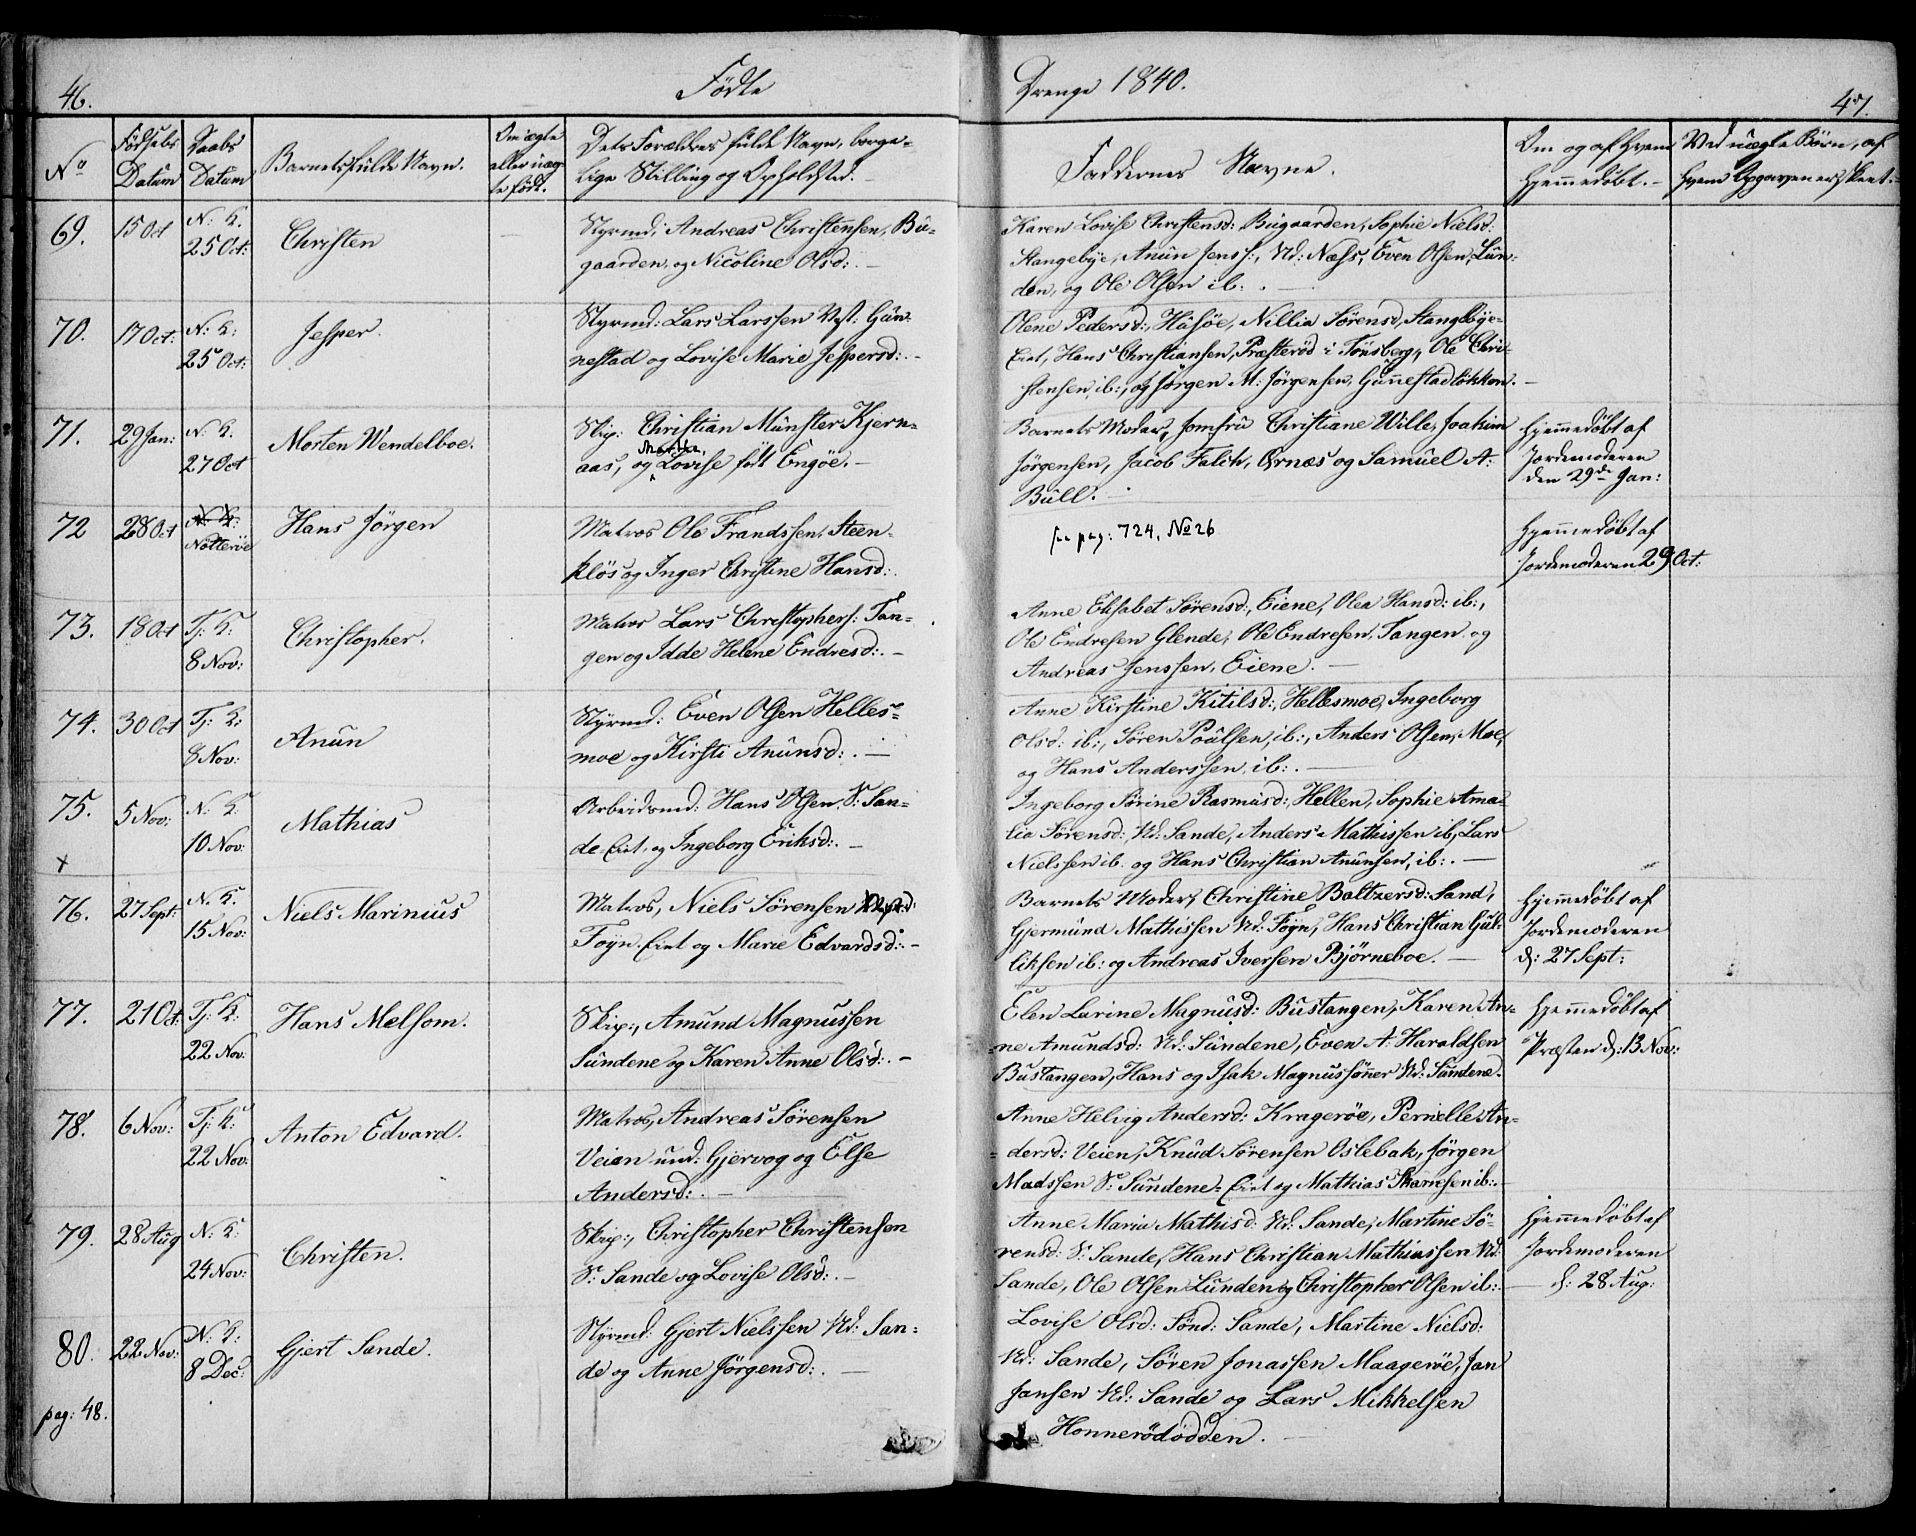 46.
Fødte
Drenge 1840.
47.
No
Fødsels Datum
Daabs Datum
Barnets fulde Navn.
Om ægte eller uægte født.
Dets Forældres fulde Navn, borge-
lige Stilling og Opholdsted.
Faddernes Navne.
Om og af Hvem
hjemmedøbt.
Ved uægte Børn, af
hvem Opgaven er skeet.
69.
15 Oct
N: K.
25 Oct:
Christen
Styrmd: Andreas Christensen, Bu-
gaarden, og Nicoline Olsd:. —
Karen Lovise Christensd: Bugaarden, Sophie Nielsd:
Stangebye, Anun Jenss:, Nd: Næss, Even Olsen, Lun-
den, og Ole Olsen ib: . —
70.
17 Oct:
N: K:
25 Oct:
Jesper.
Styrmd: Lars Larssen Vest: Gun-
nestad og Lovise Marie Jespersd:. —
Olene Pedersd:, Husøe, Nillia Sørensd, Stangebye-
Eiet, Hans Christiansen, Præsterød i Tønsberg, Ole Chri-
stensen, ib:, og Jørgen M: Jørgensen, Gunnestadløkken. —
71.
29 Jan:
N: K.
27 Oct
Morten Wendelboe.
Skip: Christian Münster Kjern-
aas, og Marthe Lovise født Engøe. —
Barnets Moder, Jomfru Christiane Wille, Joakim
Jørgensen, Jacob Falch, Ørnæs og Samuel A:
Bull. —
Hjemmedøbt af
Jordemoderen
den 29de Jan:
72
28 Oct
N: K:
Nøtterøe
Hans Jørgen
Matros Ole Frandssen, Steen-
kløs og Inger Christine Hansd:.
see pag: 724, No 26
Hjemmedøbt af
Jordemoderen 29 Oct:
73.
18 Oct
Tj: K:
8 Nov:
Christopher.
Matros Lars Christophers: Tan-
gen og Idde Helene Endresd:. —
Anne Elisabet Sørensd:, Eiene, Olea Hansd: ib:,
Ole Endresen Glende, Ole Endresen, Tangen, og
Andreas Jenssen, Eiene. —
74.
30 Oct
Tj: K:
8 Nov:
Anun
Styrmd: Even Olsen Helles-
moe og Kirsti Anunsd:. —
Anne Kirstine Kitilsd:, Hellesmoe, Ingeborg
Olsd: ib:, Søren Poulsen, ib:, Anders Olsen, Moe,
og Hans Anderssen, ib:. —
75.
+
5 Nov:
N: K:
10 Nov:
Mathias
Arbeidsmd: Hans Olsen, S: San-
de-Eiet, og Ingeborg Eriksd:. —
Ingeborg Sørine Rasmusd:, Hellen, Sophie Ama-
lia Sørensd: Nd: Sande, Anders Mathissen ib, Lars
Nielssen ib. og Hans Christian Anunsen, ib:. —
76.
27 Sept:
N. K.
15 Nov:
Niels Marinius
Matros, Niels Sørensen
Føyn Eiet og Marie Edvardsd:. —
Barnets Moder, Christine Baltzersd: Sand,
Gjermund Mathissen Nd: Føyn, Hans Christian Gul-
liksen ib: og Andreas Iversen Bjørneboe. —
Hjemmedøbt af
Jordemoderen
d: 27 Sept:
77.
21 Oct:
Tj: K:
22 Nov:
Hans Melsom.
Skip:, Amund Magnussen
Sundene og Karen Anne Olsd:. —
Elen Larine Magnusd: Bustangen, Karen An-
ne Amundsd: Nd: Sundene, Even A: Haraldsen
Bustangen, Hans og Isak Magnussønner Nd: Sundene.
Hjemmedøbt af
Præsten d: 13 Nov:
78.
6 Nov:
Tj: K:
22 Nov:
Anton Edvard.
Matros, Andreas Sørensen
Veien und: Gjervog og Else
Andersd:. —
Anne Helvig Andersd: Kragerøe, Pernelle An-
dersd: Veien, Knud Sørensen Oslebak, Jørgen
Madssen S: Sundene-Eiet og Mathias Thariesen ib:.
79.
28 Aug
N. K:
24 Nov:
Christen.
Skip:, Christopher Christensen
S: Sande og Lovise Olsd:. —
Anne Maria Mathisd: Nd: Sande, Martine Sø-
rensd: S: Sande, Hans Christian Mathiassen Nd:
Sande, Ole Olsen Lunden og Christopher Olsen ib:.
Hjemmedøbt af
Jordemoderen
d: 28 Aug:
80.
22 Nov:
N: K:
8 Dec:
Gjert Sande.
Styrmd: Gjert Nielssen Nd: San-
de og Anne Jørgensd:. —
Lovise Olsd: Sønd: Sande, Martine Nielsd:
Nd: Sande, Søren Jonassen Maagerøe, Jan
Jansen Nd: Sande og Lars Mikkelsen
Honnerødødden. —
pag: 48.